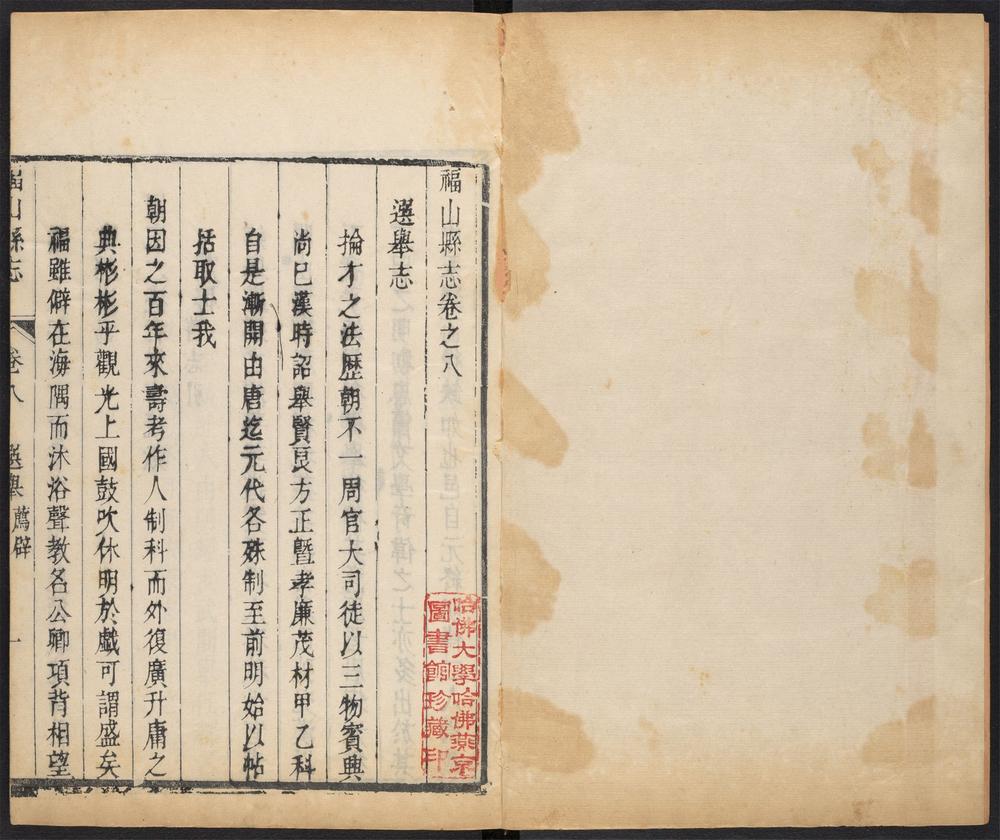 福山縣志卷之八
選舉志
掄才之法歷朝不一周官大司徒以三物賓興
尚已漢時詔舉賢良方正曁孝廉茂材甲乙科
自是漸開由唐迄元代各殊制至前明始以帖
括取士我
朝因之百年來壽考作人制科而外復廣升庸之
典彬彬乎觀光上國鼓吹休明於戲可謂盛矣
福雖僻在海隅而沐浴聲教名公卿項背相望
福山縣志
卷八
選舉 薦辟
一
哈佛大學哈佛燕京
圖書館珍藏印